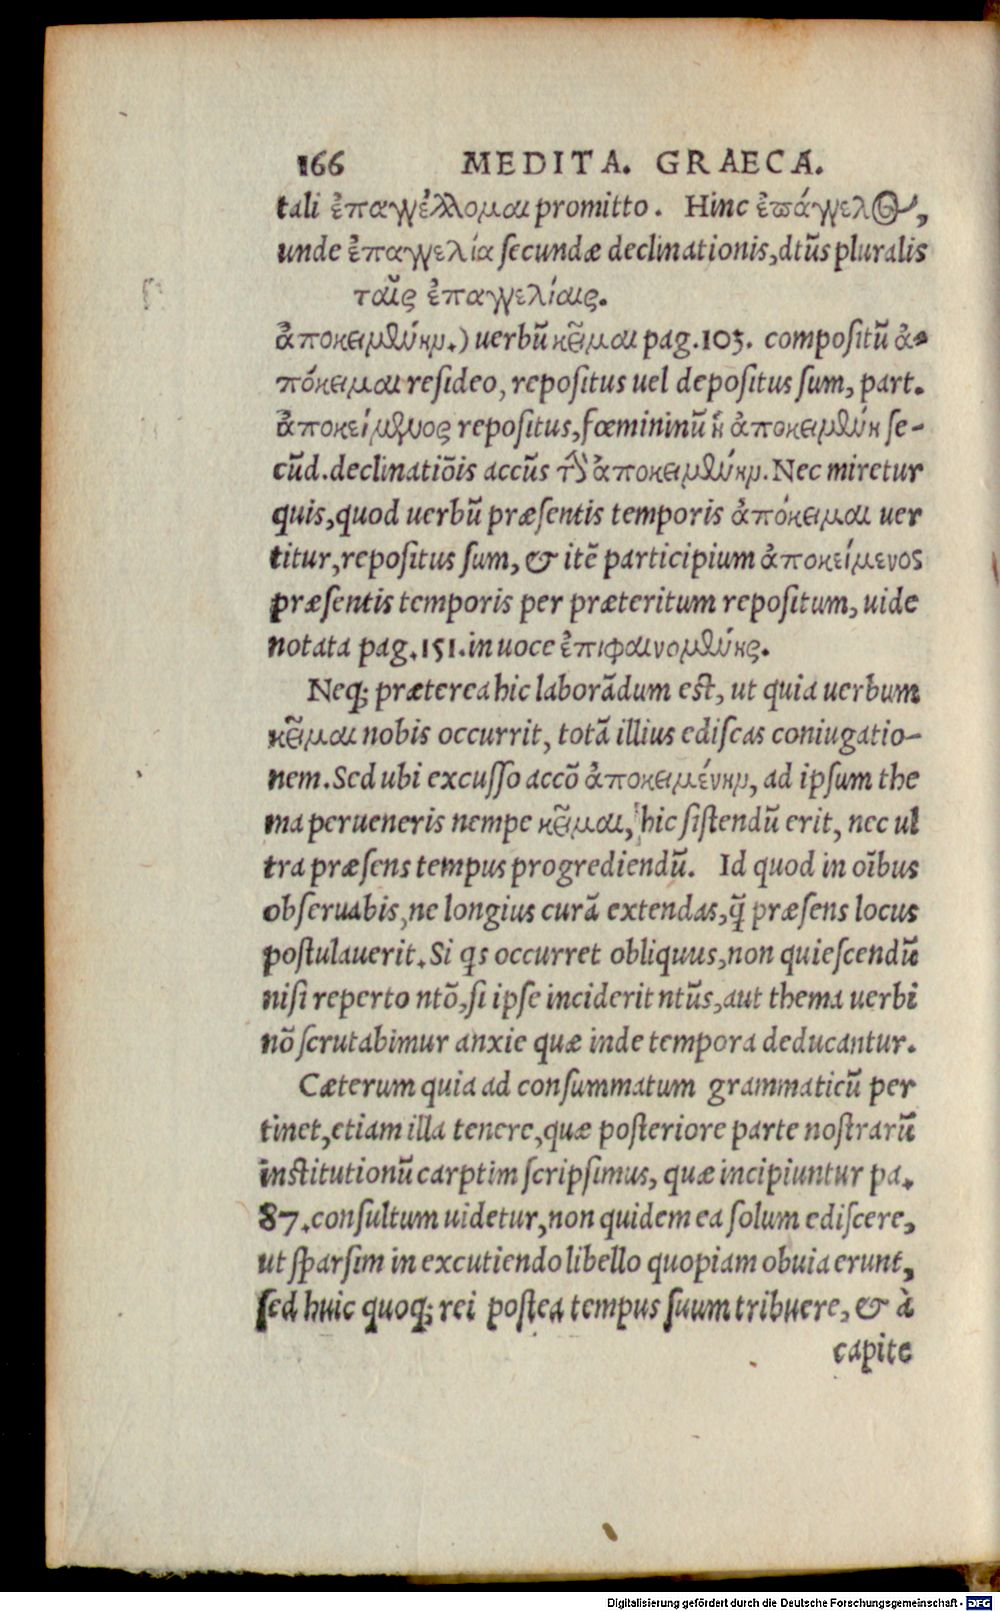 166 MEDITA. GRAECA.
tali ἐπαγγέλλομαι promitto. Hinc ἐπάγγελος,
unde ἐπαγγελία secundæ declinationis, dtũs pluralis
ταῖς ἐπαγγελίαις.
ἀποκειμένην.) uerbũ κεῖμαι pag. 103. compositũ ἀ-
πόκειμαι resideo, repositus uel depositus sum, part.
ἀποκείμενος repositus, fœmininũ ἡ ἀποκειμένη se-
cũd. declinatiõis accũs τὴν ἀποκειμένην. Nec miretur
quis, quod uerbũ præsentis temporis ἀπόκειμαι uer
titur, repositus sum, & itẽ participium ἀποκείμενος
præsentis temporis per præteritum repositum, uide
notata pag. 151. in uoce ἐπιφαινομένης.
Neq; præterea hic laborãdum est, ut quia uerbum
κεῖμαι nobis occurrit, totã illius ediscas coniugatio-
nem. Sed ubi excusso accõ ἀποκειμένην, ad ipsum the
ma perueneris nempe κεῖμαι, hic sistendũ erit, nec ul
tra præsens tempus progrediendũ. Id quod in oĩbus
obseruabis, ne longius curã extendas, q̃ præsens locus
postulauerit. Si qs occurret obliquus, non quiescendũ
nisi reperto ntõ, si ipse inciderit ntũs, aut thema uerbi
nõ scrutabimur anxie quæ inde tempora deducantur.
Cæterum quia ad consummatum grammaticũ per
tinet, etiam illa tenere, quæ posteriore parte nostrarũ
institutionũ carptim scripsimus, quæ incipiuntur pa.
87. consultum uidetur, non quidem ea solum ediscere,
ut sparsim in excutiendo libello quopiam obuia erunt,
sed huic quoq; rei postea tempus suum tribuere, & à
capite
Digitalisierung gefördert durch die Deutsche Forschungsgemeinschaft - DFG